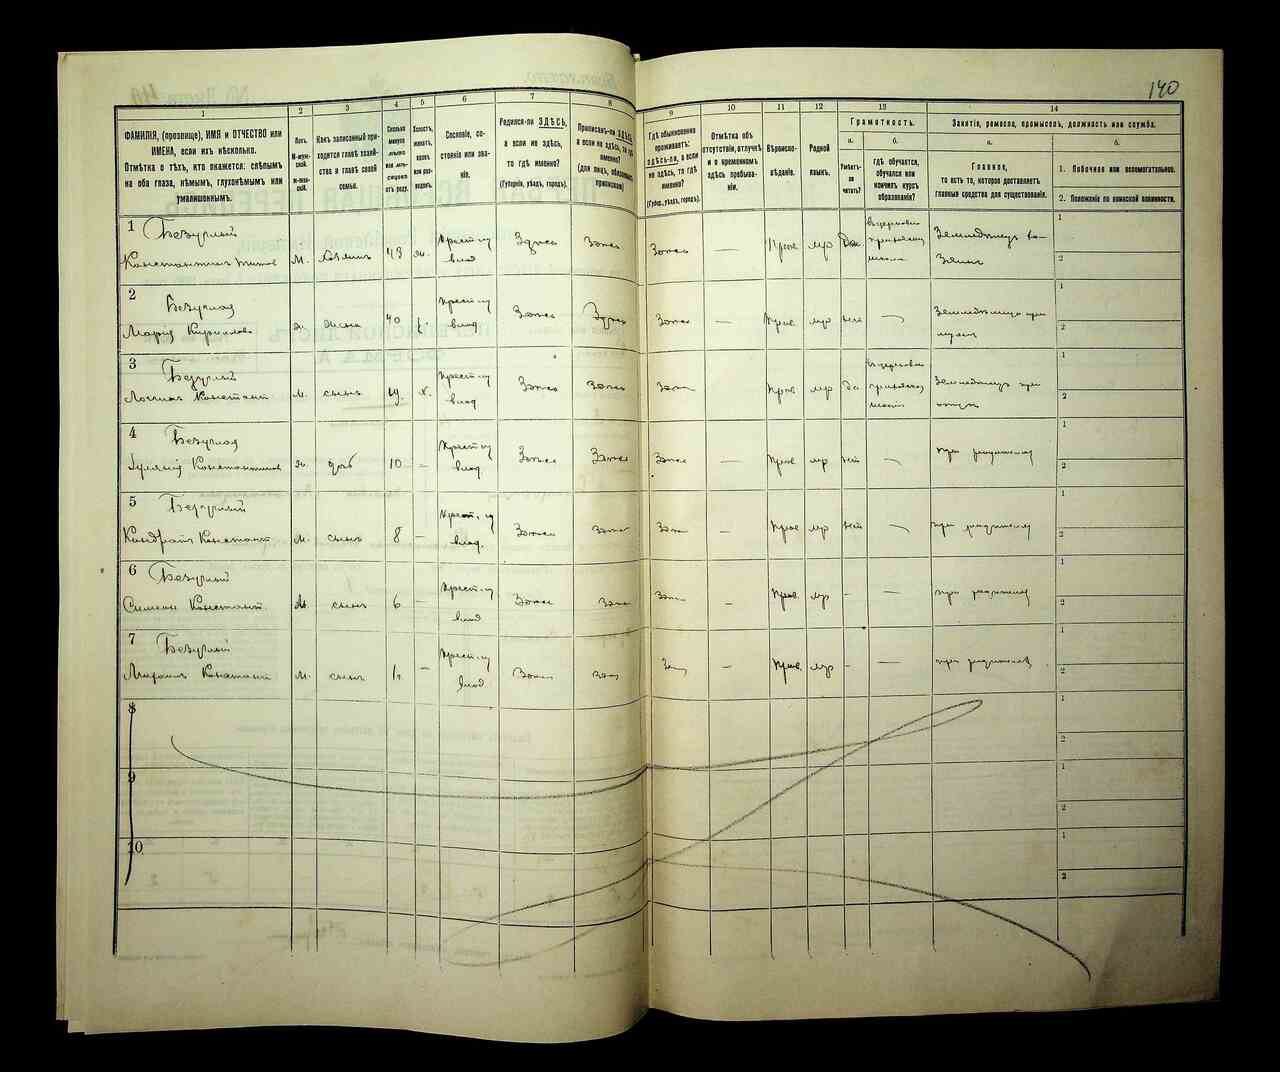 140
1
2
3
4
5
6
7
8
9
10
11
12
13
14
ФАМИЛІЯ, (прозвище), ИМЯ и ОТЧЕСТВО или
ИМЕНА, если ихъ нѣсколько.
Отмѣтка о тѣхъ, кто окажется: слѣпымъ
на оба глаза, нѣмымъ, глухонѣмымъ или
умалишоннымъ.
Полъ.
М-муж-
ской.
ж-жен-
ской.
Какъ записанный при-
ходится главѣ хозяй-
ства и главѣ своей
семьи.
Сколько
минуло
лѣтъ
или мѣ-
сяцевъ
отъ роду.
Холостъ,
женатъ,
вдовъ
или раз-
веденъ.
Сословіе, со-
стояніе или зва-
ніе.
Родился-ли ЗДѢСЬ,
а если не здѣсь,
то гдѣ именно?
(Губернія, уѣздъ, городъ).
Приписанъ-ли ЗДѢСЬ,
а если не здѣсь, то гдѣ
именно?
(для лицъ, обязанныхъ
припиской)
Гдѣ обыкновенно
проживаетъ:
здѣсь-ли, а если
не здѣсь, то гдѣ
именно?
(Губер., уѣздъ, городъ).
Отмѣтка объ
отсутствіи, отлучкѣ
и о временномъ
здѣсь пребыва-
ніи.
Вѣроиспо-
вѣданіе.
Родной
языкъ.
Грамотность.
а.
б.
Умѣетъ-
ли
читать?
Гдѣ обучается,
обучался или
кончилъ курсъ
образованія?
Занятіе, ремесло, промыселъ, должность или служба.
а.
б.
Главное,
то есть то, которое доставляетъ
главныя средства для существованія.
1. Побочное или вспомогательное.
2. Положеніе по воинской повинности.
1 Безуглый
Константинъ Титовъ
М. хозяинъ 43 ж. Крест. из влад Здѣсь Здѣсь Здѣсь — Прав мр Да
Земледѣлецъ хо-
зяинъ
1
2
2 Безуглая
Марія Кириллова
ж. жена 40 Крест. из влад Здѣсь Здѣсь Здѣсь — Прав мр нет —
Земледѣлица при
мужѣ
1
2
3 Безуглый
Констант
м. сынъ 19 х. Крест. из влад Здѣсь Здѣсь Здѣсь — Прав мр да
Земледѣлецъ при
отцѣ
1
2
4 Безуглая
Константинов
ж. дочь 10 — Крест из влад Здѣсь Здѣсь Здѣсь — Прав мр нет — при родителяхъ
1
2
5 Безуглый
Кондратъ Констант
м. сынъ 8 — Крест. из влад. Здѣсь Здѣсь Здѣсь — Прав мр нет — при родителяхъ
1
2
6 Безуглый
Симеонъ Констант.
М сынъ 6 — Крест. из влад Здѣсь Здѣсь Здѣсь — Прав мр - — при родителяхъ
1
2
7 Безуглый
Михаилъ Констант
м. сынъ — Крест. из влад Здѣсь Здѣсь — Прав мр - — при родителяхъ
1
2
8
1
2
9
1
2
10
1
2